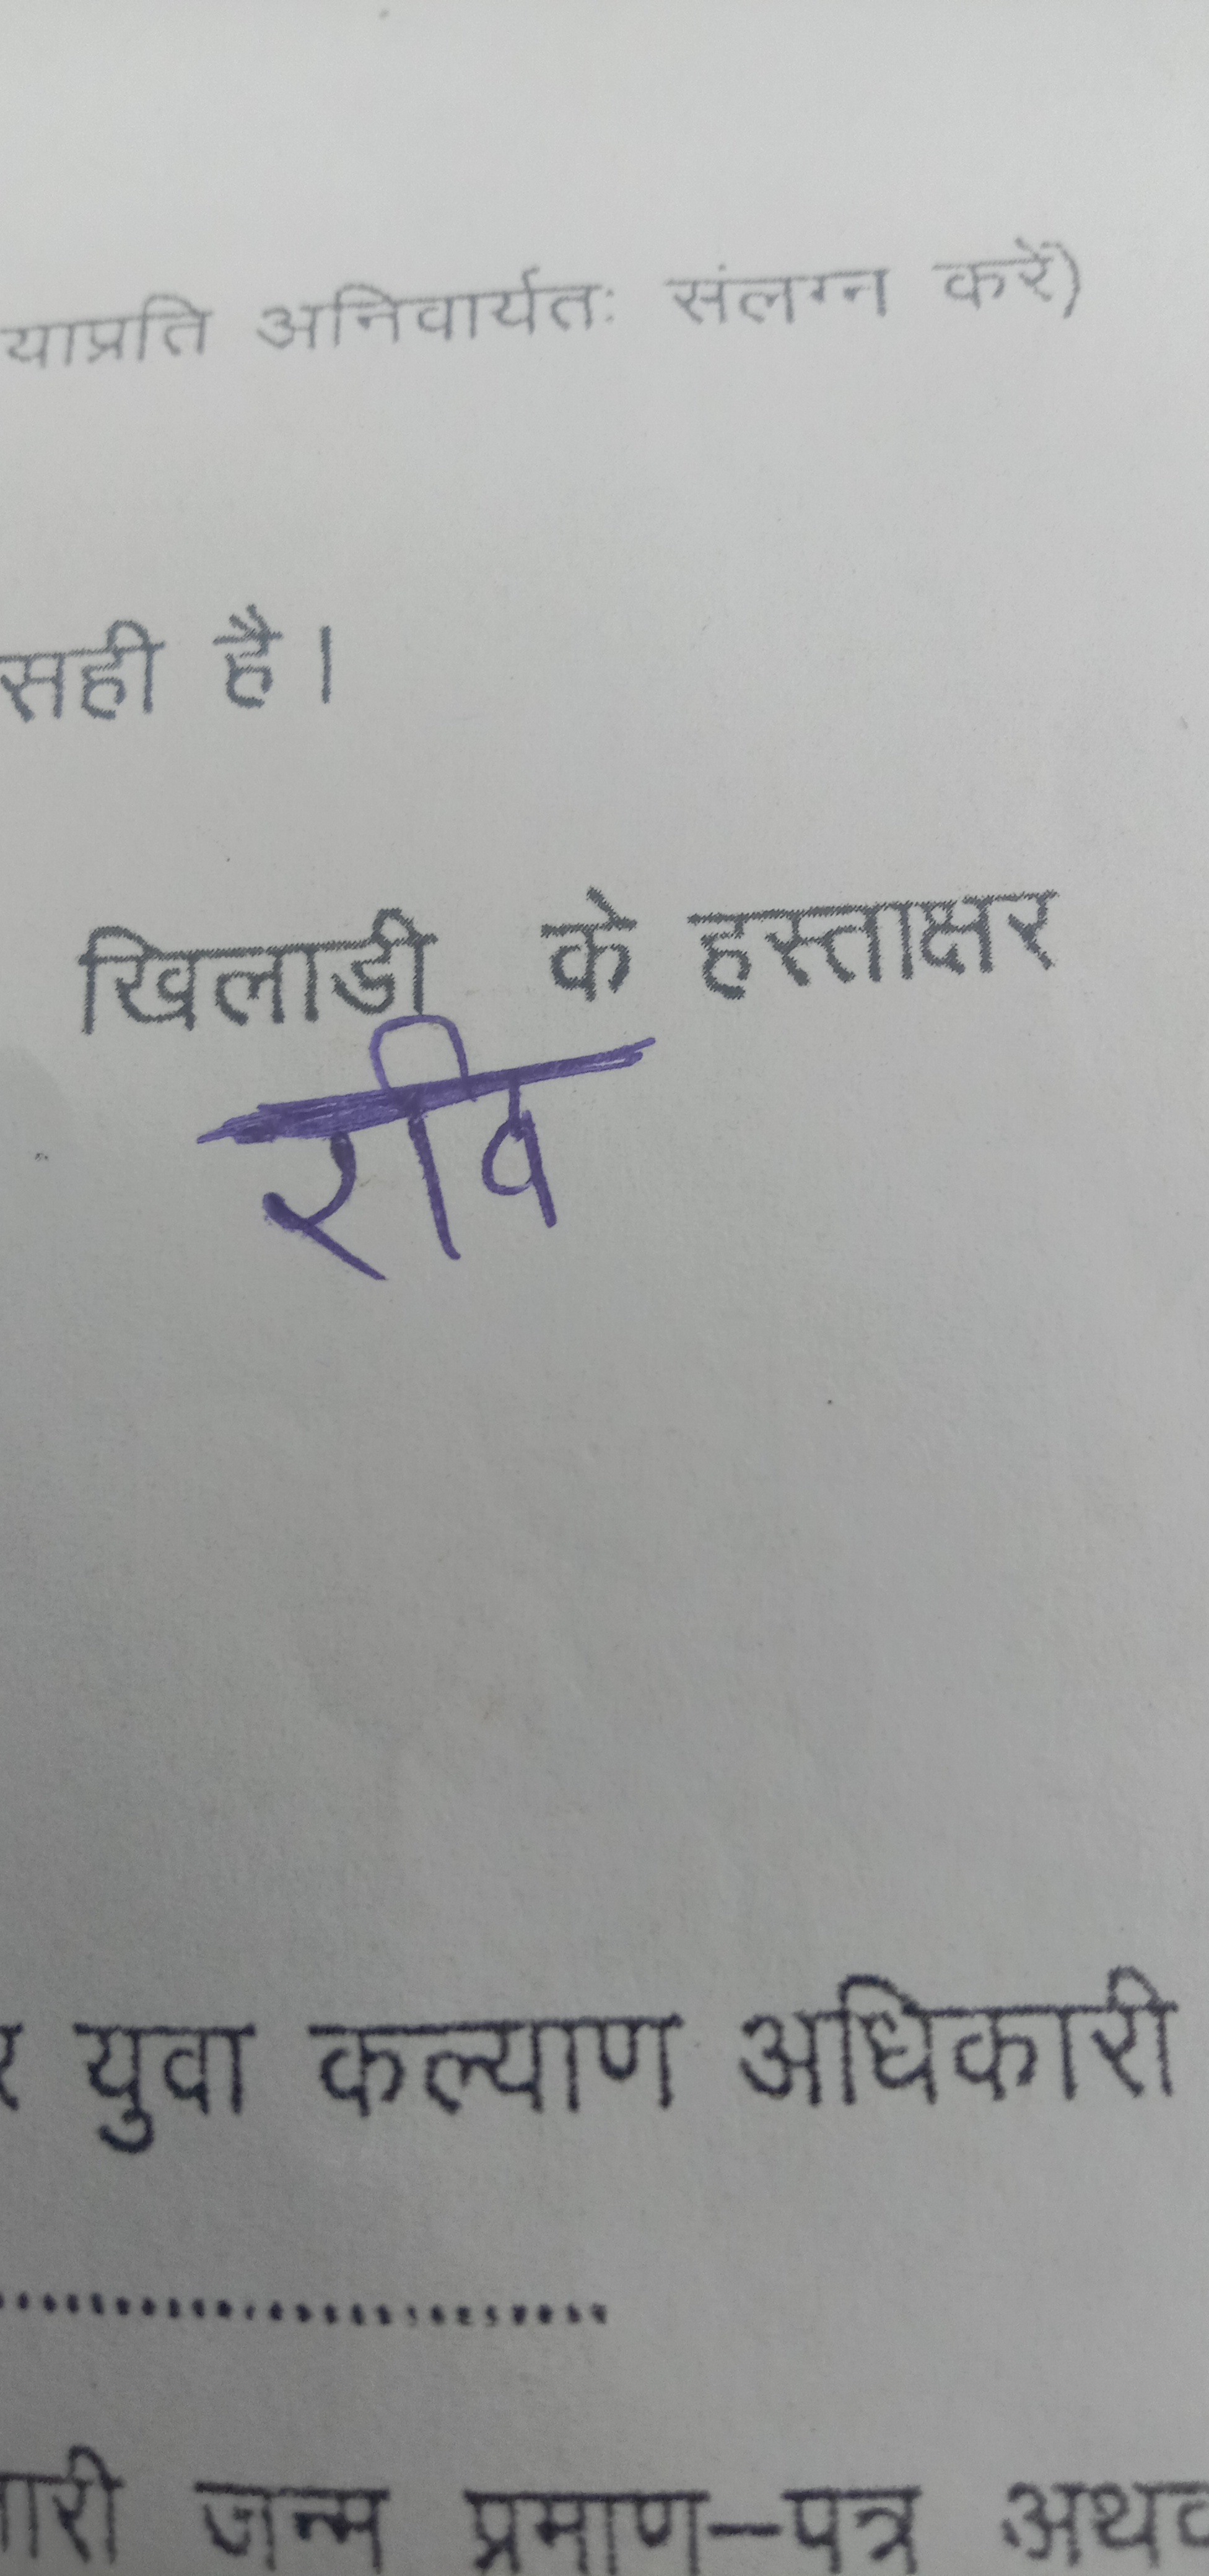 याप्रति अनिवार्यतः संलग्न करें)
सही है।
खिलाडी के हस्ताक्षर
रवि
र युवा कल्याण अधिकारी
..........................................
ारी जन्म प्रमाण–पत्र अथव